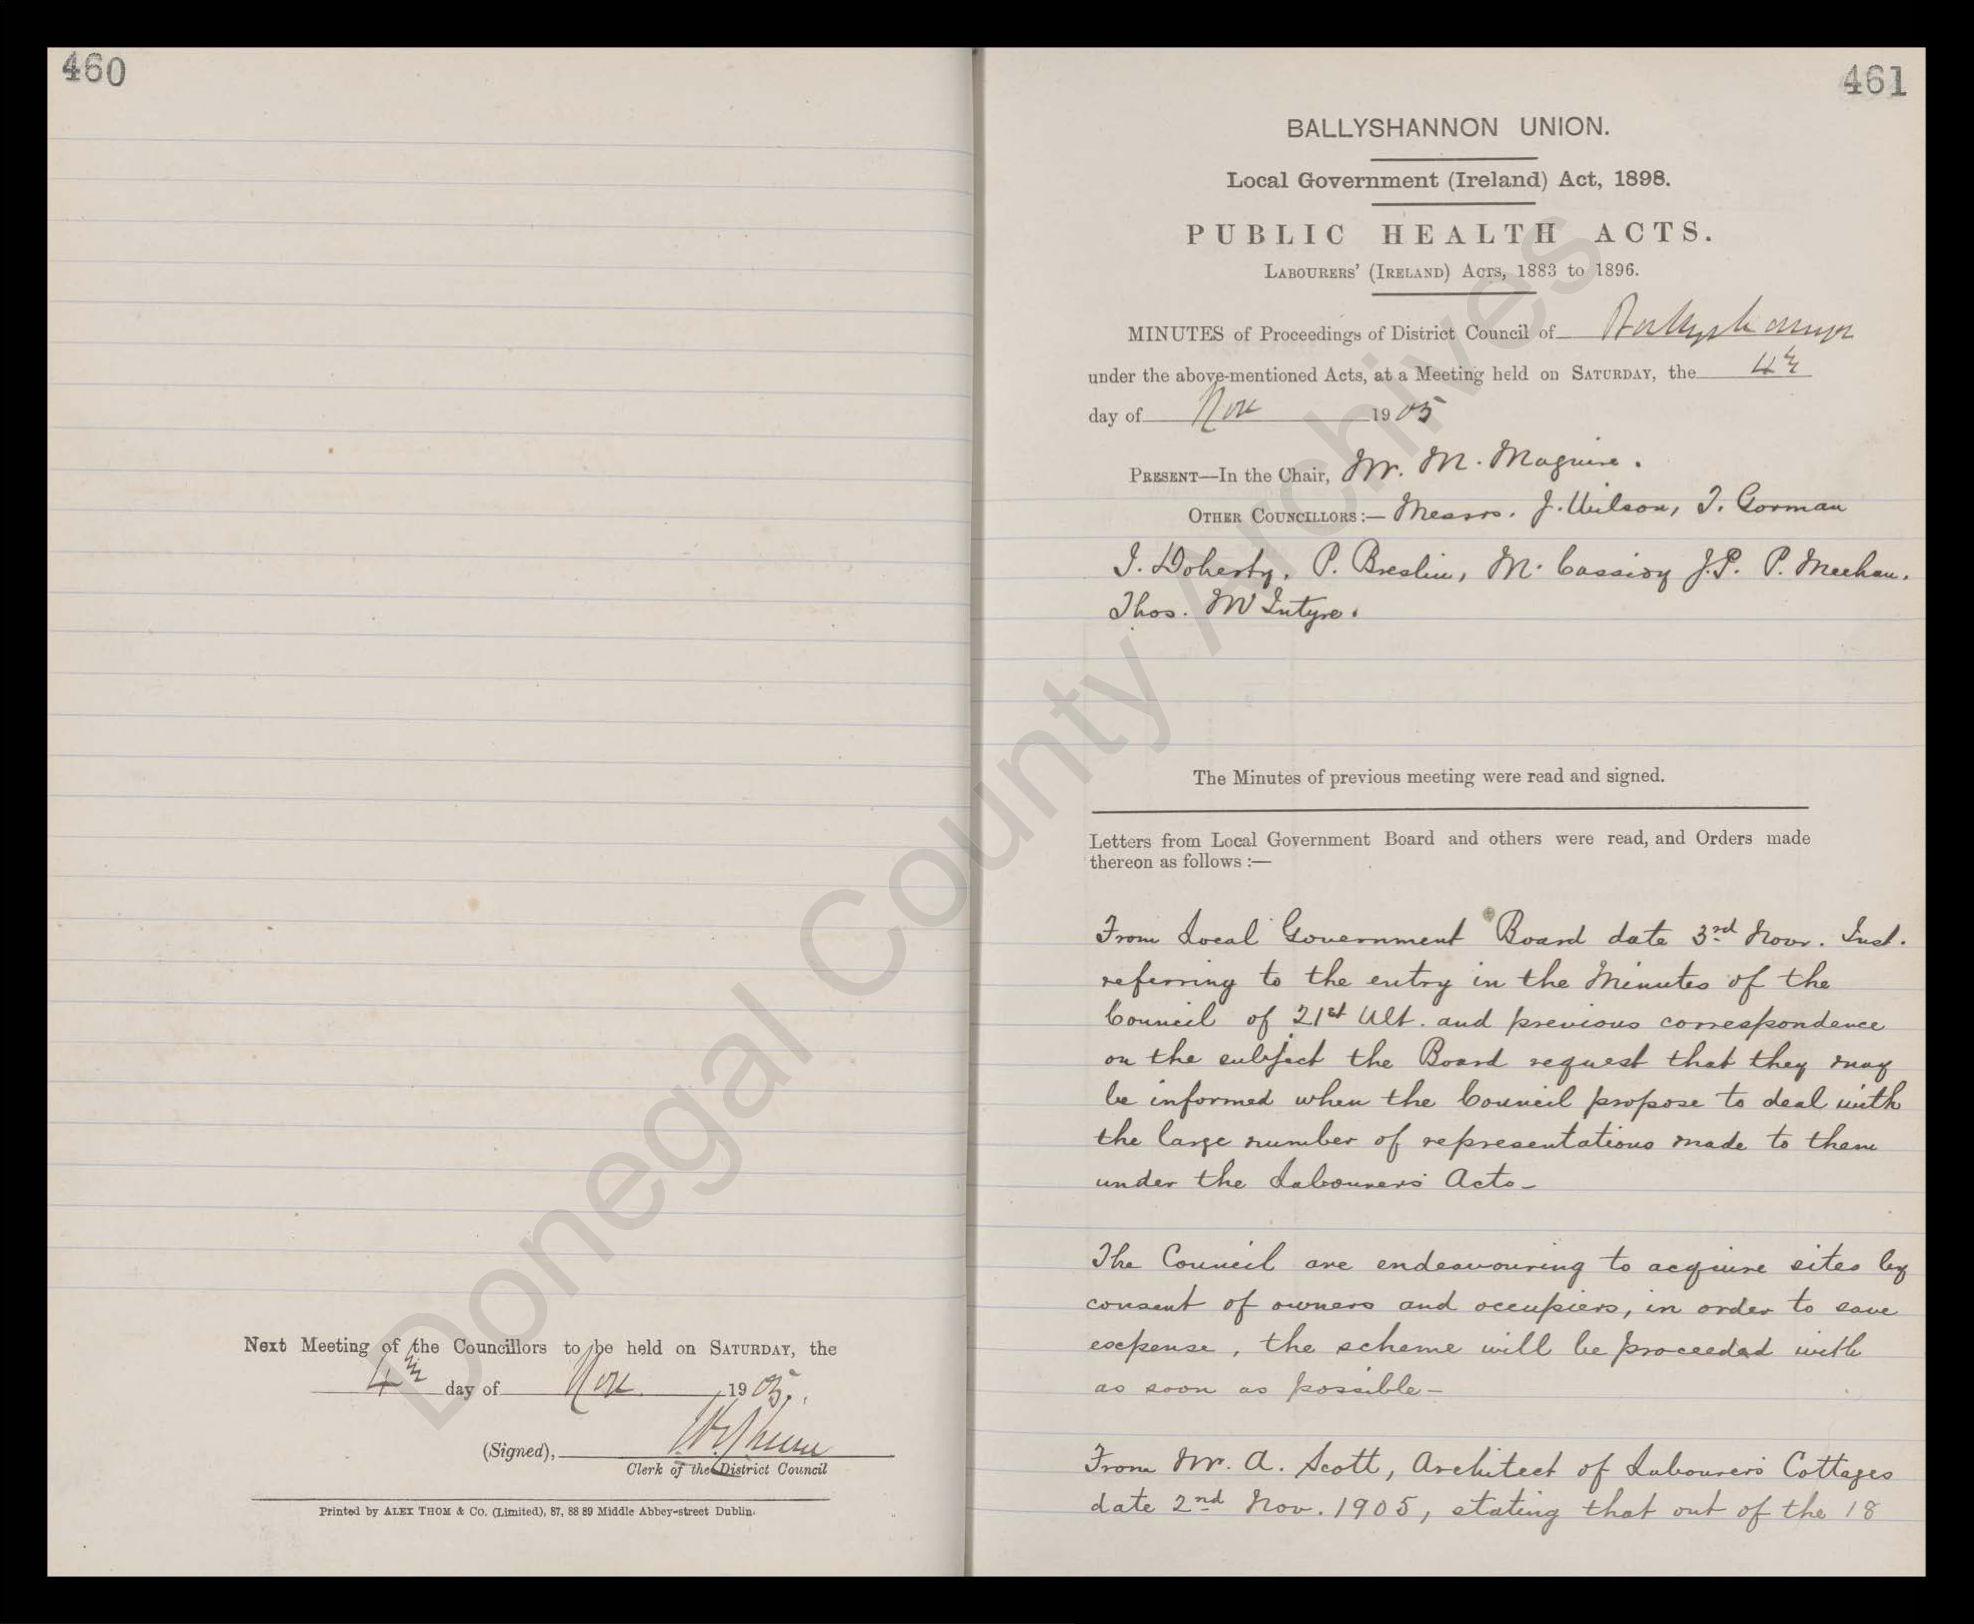 460
Next Meeting of the Councillors to be held on SATURDAY, the
4th day of Nov 1905.
(Signed),
Clerk of the District Council
Printed by ALEX THOM & Co. (Limited), 87, 88 89 Middle Abbey-street Dublin.
461
BALLYSHANNON UNION.
Local Government (Ireland) Act, 1898.
PUBLIC HEALTH ACTS.
LABOURERS' (IRELAND) ACTS, 1883 to 1896.
MINUTES of Proceedings of District Council of Ballyshannon
under the above-mentioned Acts, at a Meeting held on SATURDAY, the 4th
day of Nov 1905
PRESENT—In the Chair, Mr. M. Maguire.
OTHER COUNCILLORS:— Messrs. J. Wilson, T. Gorman
J. Doherty, P. Breslin, M. Cassidy J.P. P. Meehan.
Thos. McIntyre.
The Minutes of previous meeting were read and signed.
Letters from Local Government Board and others were read, and Orders made
thereon as follows :—
From Local Government Board date 3rd Novr. Inst.
referring to the entry in the Minutes of the
Council of 21st Ult. and previous correspondence
on the subject the Board request that they may
be informed when the Council propose to deal with
the large number of representations made to them
under the Labourers' Acts-
The Council are endeavouring to acquire sites by
consent of owners and occupiers, in order to save
expense, the scheme will be proceeded with
as soon as possible-
From Mr. A. Scott, Architect of Labourers' Cottages
date 2nd Nov. 1905, stating that out of the 18
Donegal County Archives